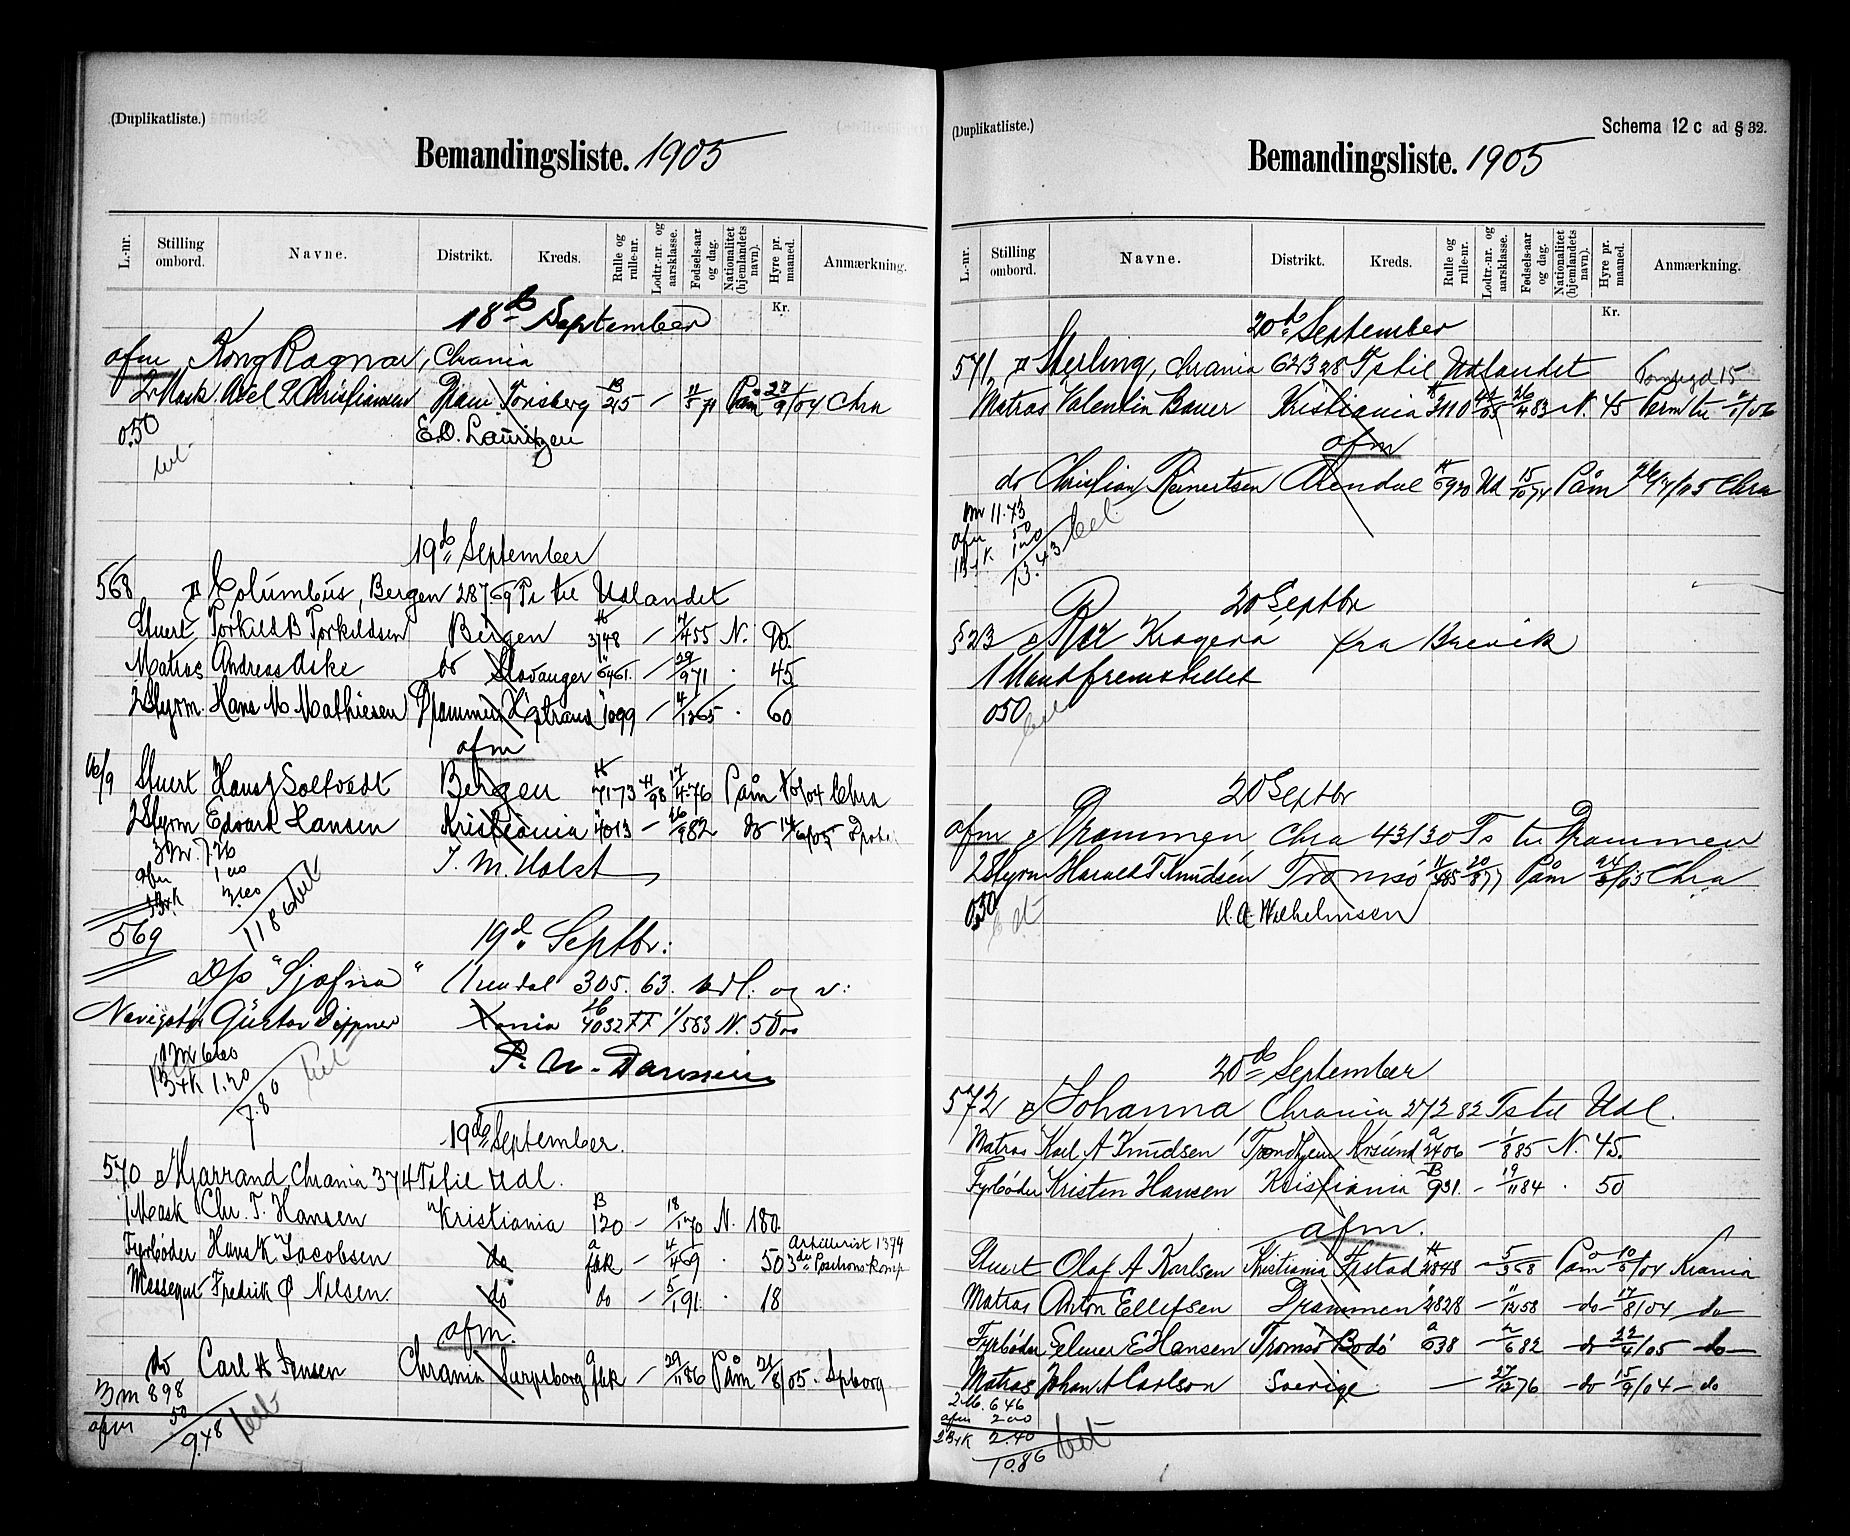 (Duplikatliste.)
Bemandingsliste. 1905
L.-nr. Stilling ombord. Navne. Distrikt. Kreds. Rulle og rulle-nr. Lodtr.-nr. og aarsklasse. Fødsels-aar og dag. Nationalitet (hjemlandets navn). Hyre pr. maaned. Anmærkning.
Kr.
18de September
afm Kong Ragnar, Chrania
2 Mask Axel L Christiansen Dram Tønsberg B 215 — 11/5 71 Påm 27/9/04 Chra
0.50 E.O. Lauritzen
bet
19de September
568 Columbus, Bergen 287.69 Ts til Udlandet
Stuert Torkild B Torkildsen Bergen 3748 — 455 N. 90.
Matros Andreas Aske do Stavanger 6461. — 29/9 71 . 45
2 Styrm. Hans M Mathiesen Drammen 1099 — 4/12 65 . 60
afm
16/9 Stuert Hans J Soltvedt Bergen 7173 11/98 17/4 76 Påm /04 Chra
2 Styrm Edvard Hansen Kristiania 4013 — 26/9 82 do 14/6/05
3 M. 7.26
afm 1 00 J. M. Holst
B+K 3.60
11 86 bet
569 19de Septbr:
D/s "Sjofna" Arendal 305.63. Udl. og v:
Navigatør Gustav Xania 4032 FF 1/5 83 N. 50 00
1 M 6.60
B+K 1.20
7.80 bet
19de September.
570 Hjarrand Chrania 374 Ts til Udl.
1 Mask Chr. T. Hansen Kristiania B 120 — 18/1 70 N. 180.
Fyrbøder Hans K Jacobsen do a fbk — 4/4 69 . 50 Artillerist 1379
Messegut Fredrik Ø Nilsen do do — 5/1 91. . 18
afm.
do Carl H Jensen Chrania Sarpsborg a fbk — 29/11 86 Påm 21/8/05. Spborg
3 m 8 98
afm 50
9.48 bet
(Duplikatliste.) Schema 12 c ad § 32.
Bemandingsliste. 1905
L.-nr. Stilling ombord. Navne. Distrikt. Kreds. Rulle og rulle-nr. Lodtr.-nr. og aarsklasse. Fødsels-aar og dag. Nationalitet (hjemlandets navn). Hyre pr. maaned. Anmærkning.
Kr.
20de September
571 Sterling, Chrania 623 28 Ts til Udlandet
Matros Valentin Bauer Kristiania 3110 /05 26/4 83 N. 45 Perm til /06
afm
do Christian Reinertsen Arendal 6920 Ud 15/10 74 Påm /05 Chra
1 m 11.43
afm 50
B+K 1 20
13.43 bet
20 Septbr
§ 23 Rex Kragerø fra Brevik
1 Mand fremstillet
0 50
bet
20 Septbr
afm Drammen, Chra 431 30 Ts til Drammen
2 Styrm Harald T Knudsen Tromsø 485 20/8 77 Påm 24/8/05 Chra
0.50 H. A. Wilhelmsen
bet
20de September
572 Johanna Chrania 272 82 Ts til Udl.
Matros Karl A Knudsen Trondhjem Krsund a 2406 — 1/8 85 N. 45.
Fyrbøder Kristen Hansen Kristiania B 931. — 19/11 84 . 50
afm.
Stuert Olaf A Karlsen Kristiania Frstad 2848 — 5/3 68 Påm 10/8/04 Krania
Matros Anton Ellefsen Drammen 2828 — 11/12 58 — do — 17/8/04 — do
Fyrbøder Elmer E Hansen Tromsø Bodø a 638 — 2/6 82 — do 22/4/05 — do —
Matros Johan A Carlson Sverige — 27/12 76 — do — 15/9/04 — do
2 M. 6 46
afm 2 00
2 B+K 2.40
10.86 bet